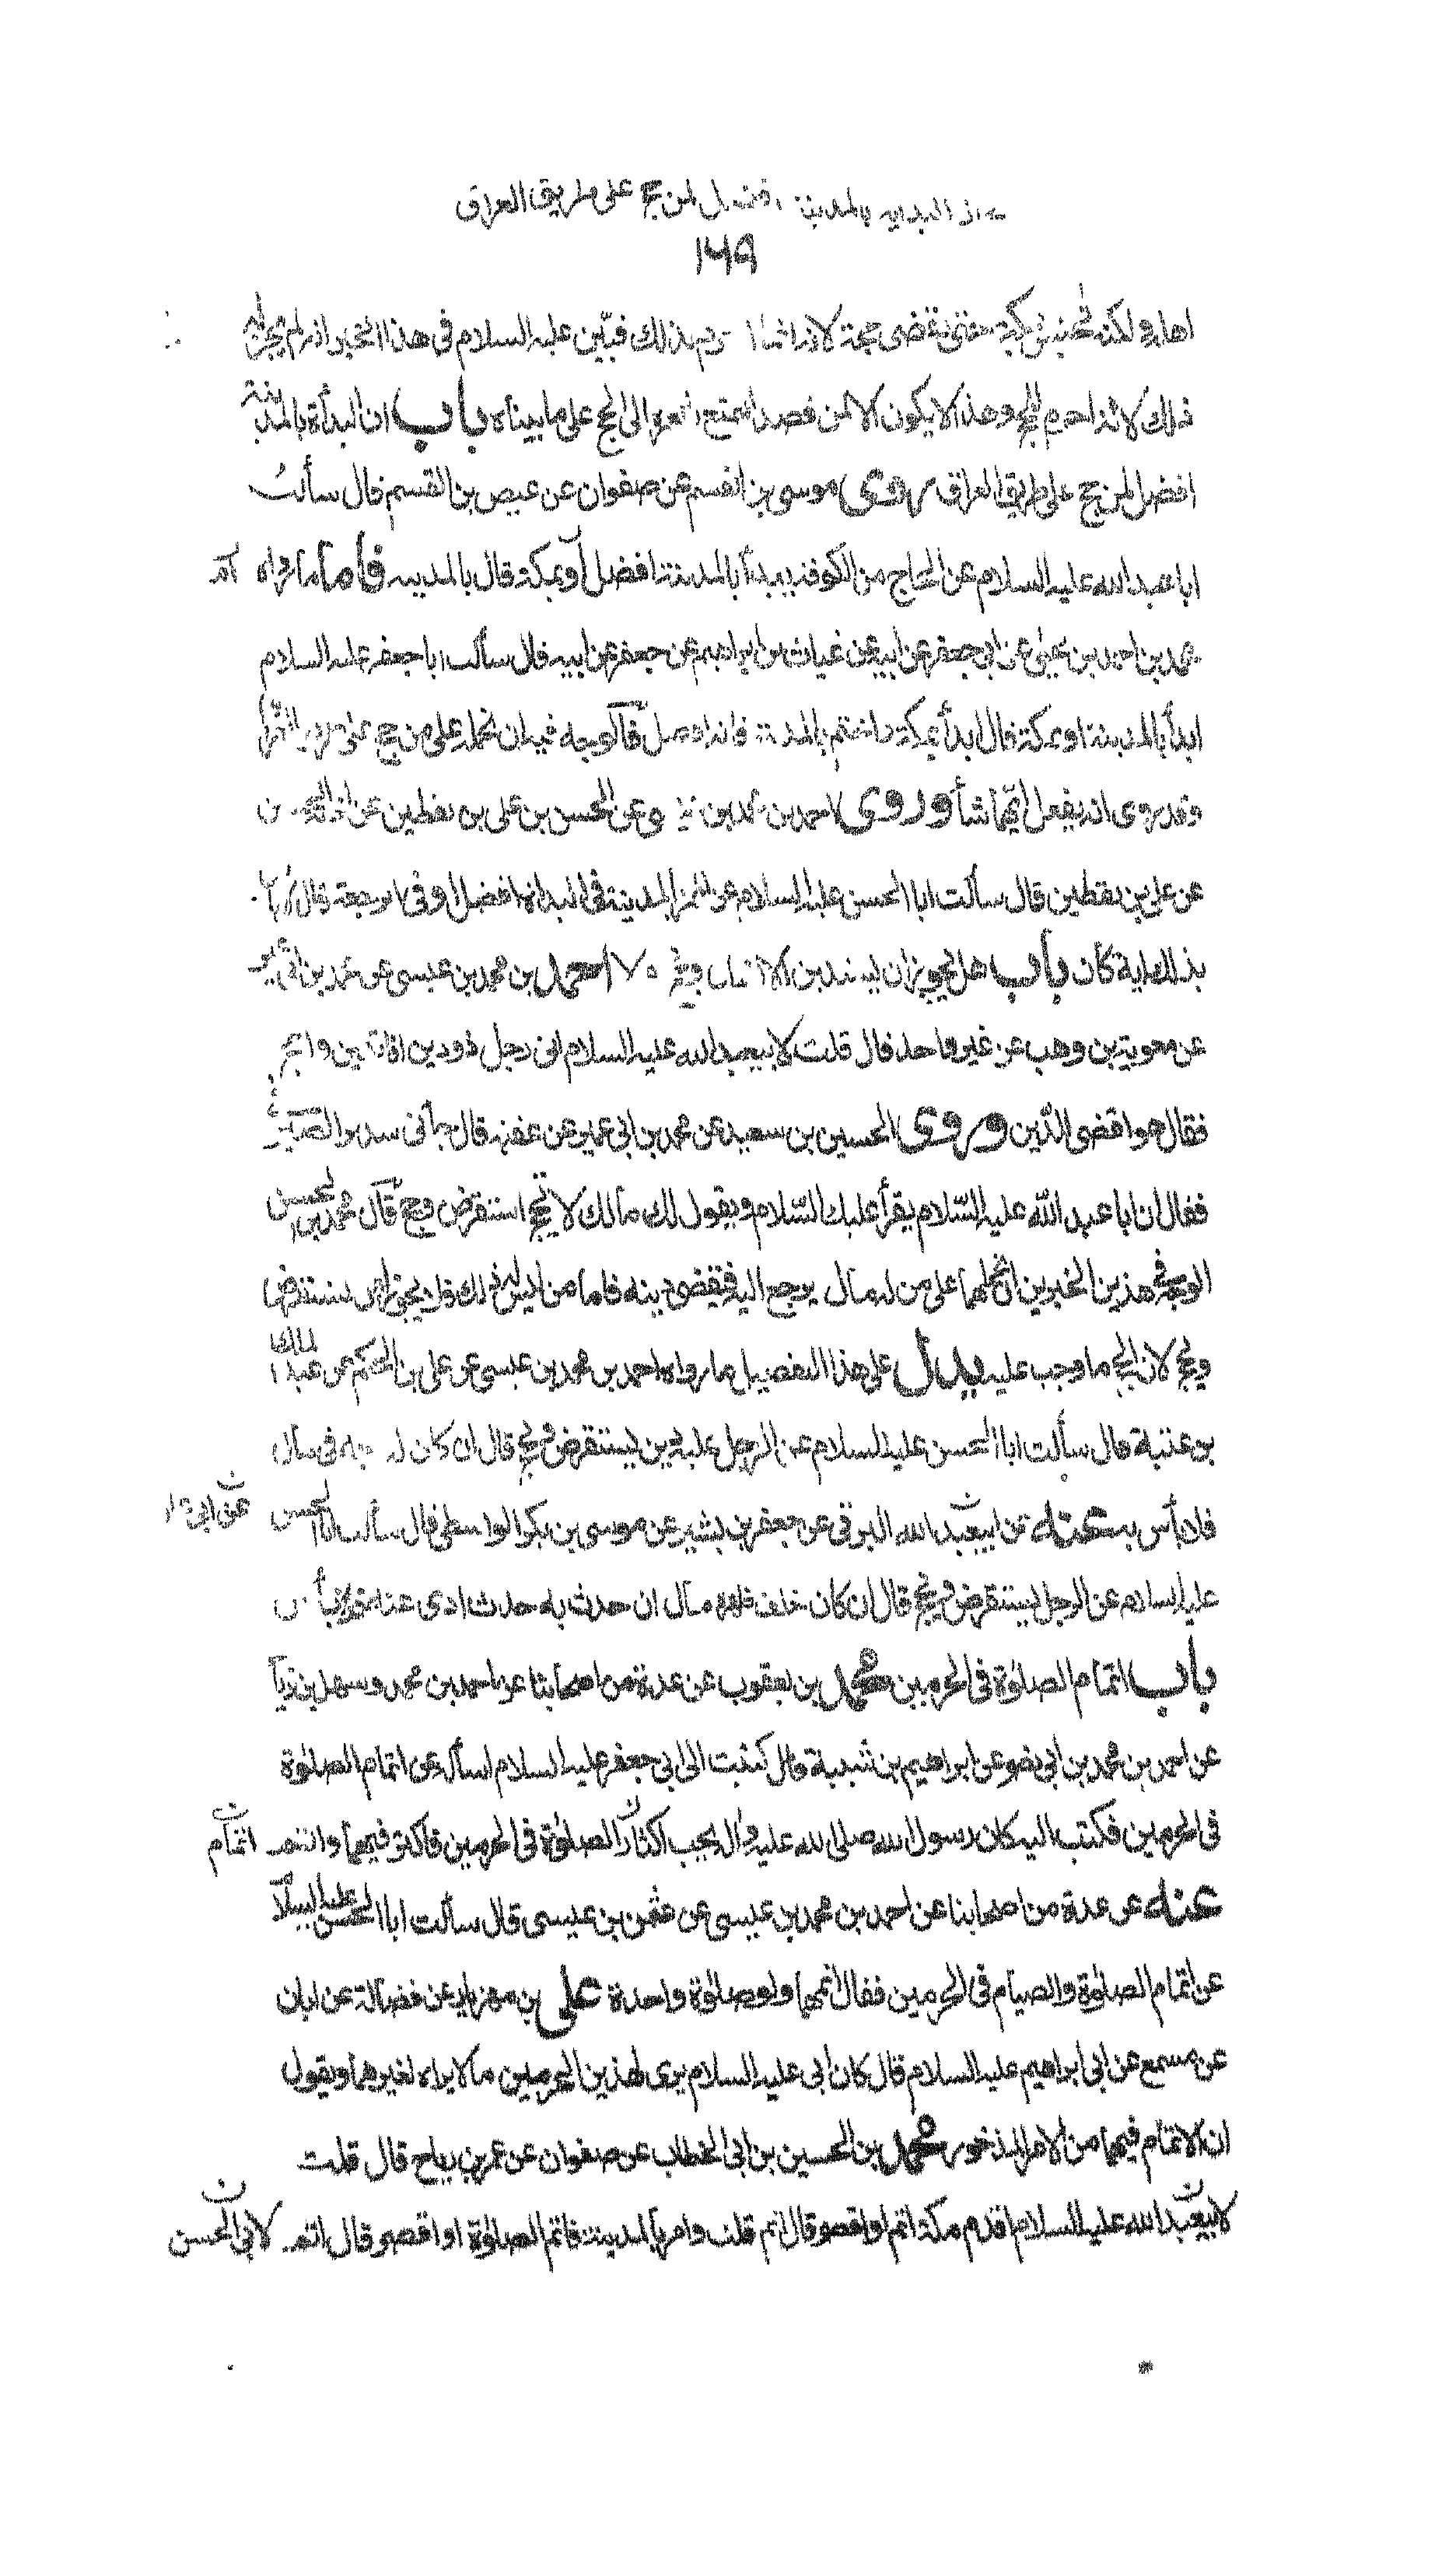 ان البدأة بالمدينة افضل لمن حج على طريق العراق
١٤٩
اهله ولكنه يحتبس بمكة حتى يقضى حجه لانه انما بذلك فبين عليه السلام فى هذا الخبر انه لم يجز له
ذلك لانه احرم بالحج وهذا لا يكون الا لمن قصد التمتع بالعمرة الى الحج على ما بيناه باب ان البدأة بالمدينة
افضل لمن حج على طريق العراق روى موسى بن القسم عن صفوان عن عيص بن القسم قال سألت
ابا عبد الله عليه السلام عن الحاج من الكوفة يبدأ بالمدينة افضل او بمكة قال بالمدينة فاما ما رواه
محمد بن احمد بن يحيى عن ابى جعفر عن ابيه عن غياث بن ابراهيم عن جعفر عن ابيه قال سألت ابا جعفر عليه السلام
ابدأ بالمدينة او بمكة قال ابدأ بمكة واختم بالمدينة فانه افضل فالوجه فيه ان نحمله على من حج على غير طريق العراق
وقد روى انه يفعل ايهما شاء وروى احمد بن محمد بن عن الحسن بن على بن يقطين عن اخيه الحسين
عن على بن يقطين قال سألت ابا الحسن عليه السلام عن الممر بالمدينة فى البداءة افضل او فى الرجعة قال لا بأس
بذلك اية كان باب هل يجوز ان يستدين الانسان ويحج ام لا احمد بن محمد بن عيسى عن محمد بن ابى عمير
عن معوية بن وهب عن غير واحد قال قلت لابيعبد الله عليه السلام انى رجل ذو دين افاتدين واحج
فقال هو اقضى للدين وروى الحسين بن سعيد عن محمد بن ابى عمير عن عقبة قال جاءنى سدير الصيرفى
فقال ان ابا عبد الله عليه السلام يقرأ عليك السلام ويقول لك مالك لا تحج استقرض وحج قال محمد بن الحسن
الوجه فى هذين الخبرين ان نحملهما على من له مال يرجع اليه فيقضى دينه فاما من ليس له ذلك فلا يجوز له ان يستقرض
ويحج لان الحج ما وجب عليه يدل على هذا التفصيل ما رواه احمد بن محمد بن عيسى عن على بن الحكم عن عبد الملك
بن عتبة قال سألت ابا الحسن عليه السلام عن الرجل عليه دين يستقرض ويحج قال ان كان له وجه فى مال
فلا بأس به عنه عن ابيعبد الله البرقى عن جعفر بن بشير عن موسى بن بكر الواسطى قال سألت ابا الحسن
عليه السلام عن الرجل يستقرض ويحج قال ان كان خلف ظهره مال ان حدث به حدث ادى عنه فلا بأس
باب اتمام الصلوة فى الحرمين محمد بن يعقوب عن عدة من اصحابنا عن احمد بن محمد وسهل بن زياد
عن احمد بن محمد بن ابى نصر عن ابراهيم بن شيبة قال كتبت الى ابى جعفر عليه السلام اسأله عن اتمام الصلوة
فى الحرمين فكتب اليه كان رسول الله صلى الله عليه وآله يحب اكثار الصلوة فى الحرمين فاكثر فيهما واتمم اتمام
عنه عن عدة من اصحابنا عن احمد بن محمد بن عيسى عن عثمن بن عيسى قال سألت ابا الحسن عليه السلام
عن اتمام الصلوة والصيام فى الحرمين فقال اتمهما ولو صلوة واحدة على بن مهزيار عن فضالة عن ابان
عن مسمع عن ابى ابراهيم عليه السلام قال كان ابى عليه السلام يرى لهذين الحرمين ما لا يراه لغيرهما ويقول
ان الاتمام فيهما من الامر المذخور محمد بن الحسين بن ابى الخطاب عن صفوان عن عمر بن رياح قال قلت
لابيعبد الله عليه السلام اقدم مكة اتم او اقصر قال اتم قلت وامر بالمدينة فاتم الصلوة او اقصر قال اتم لابى الحسن